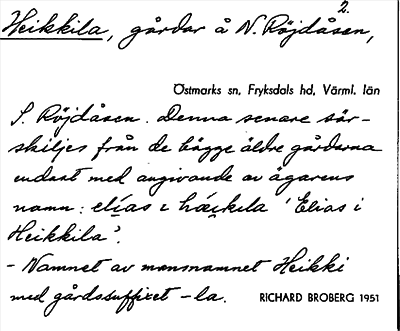 2.
Heikkila, gårdar å N. Röjdåsen,
Östmarks sn, Fryksdals hd, Värml. län
S. Röjdåsen. Denna senare sär-
skiljes från de bägge äldre gårdarna
endast med angivande av ägarens
namn: elias i häikila 'Elias i
Heikkila'.
- Namnet av mansnamnet Heikki
med gårdssuffixet -la.
RICHARD BROBERG 1951